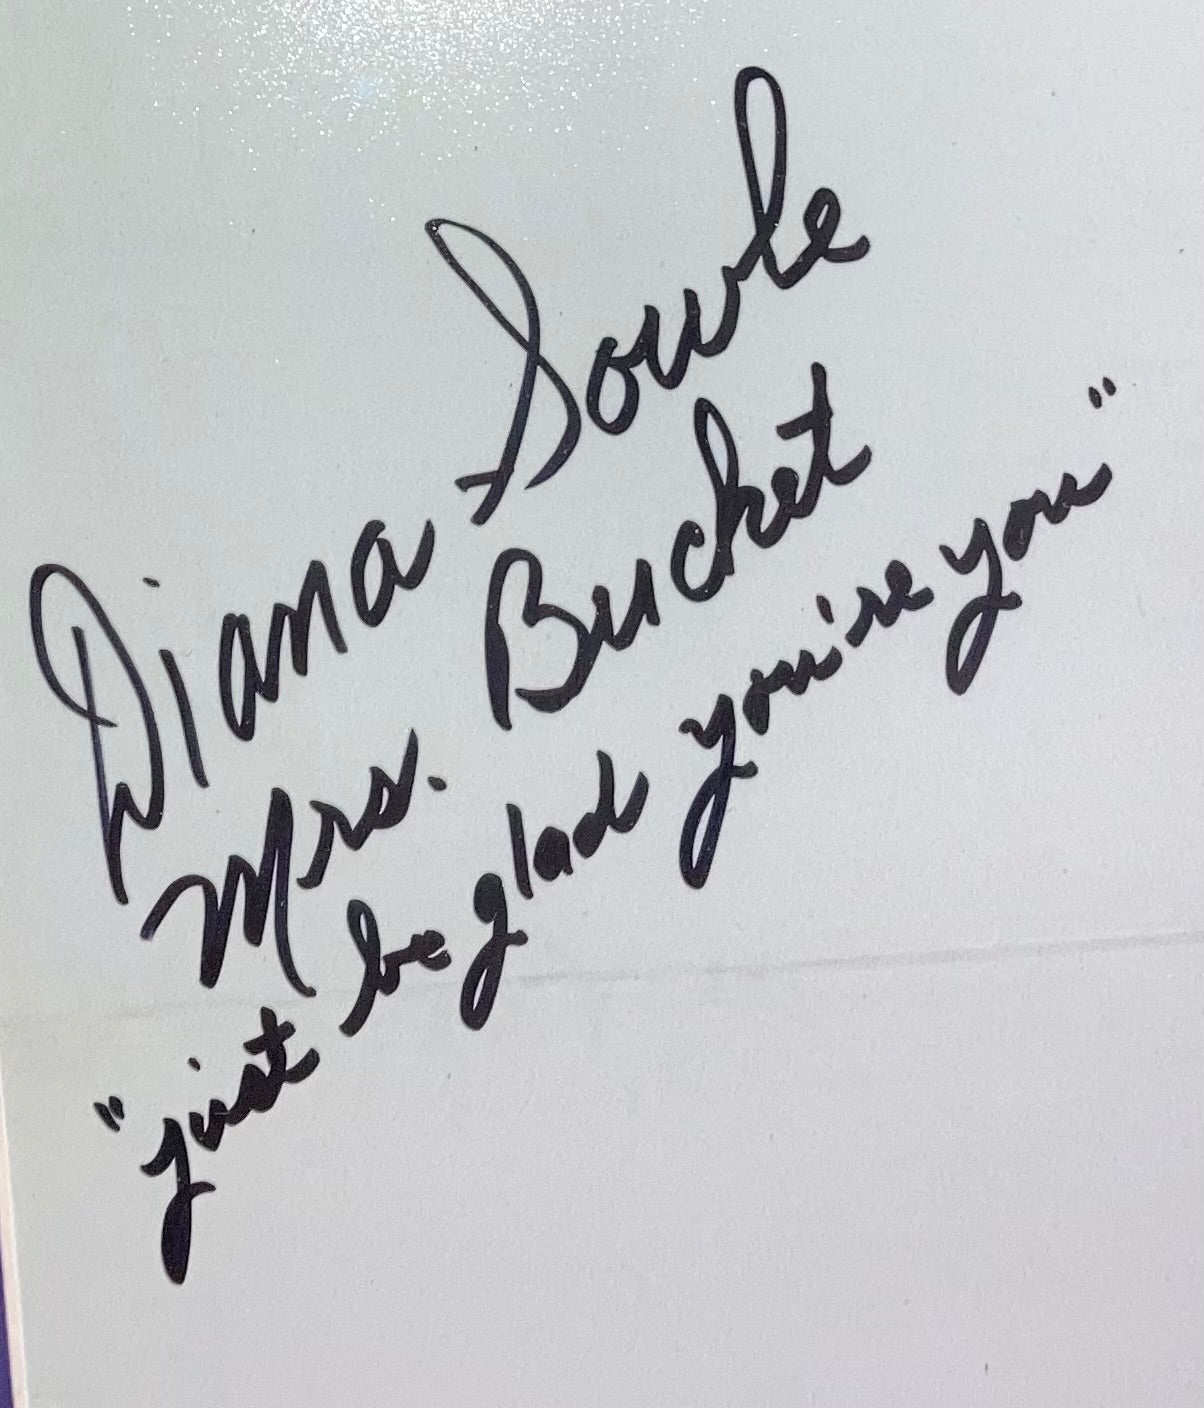 Diana Sowle
Mrs. Bucket
"just be glad you're you"